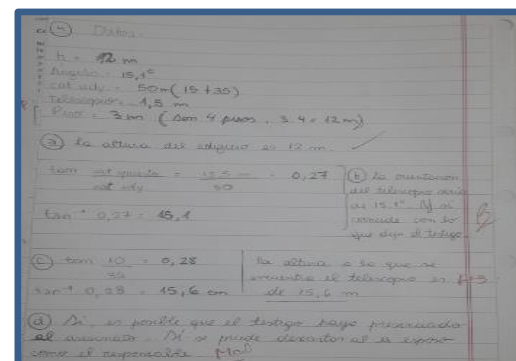 ④ Datos:
h = 12 m
Angulo = 15,1°
cat ady = 50m (15 + 35)
Telescopio = 1,5 m
Piso = 3m (son 4 pisos, 3.4 = 12m)
ⓐ La altura del edificio es 12 m. ✓
tan cat opuesto = 13,5 m = 0,27
cat ady 50
tan⁻¹ 0,27 = 15,1
ⓑ La orientacion
del telescopio
es 15.1° y si
coincide con lo
que dijo el testigo. B
ⓒ tan 10 = 0,28
35
tan⁻¹ 0,28 = 15,6 cm
la altura a la que se
encuentra el telescopio es
de 15,6 m
ⓓ Si, es posible que el testigo haya presenciado
el asesinato. Si se puede descartar al esposo
como el responsable